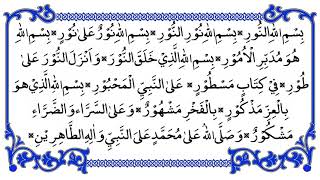 بِسْمِ اللهِ النُّوْرِ * بِسْمِ اللهِ نُوْرِ النُّوْرِ * بِسْمِ اللهِ نُوْرٌ عَلٰى نُوْرٍ * بِسْمِ اللهِ
هُوَ مُدَبِّرِ الْاُمُوْرِ * بِسْمِ اللهِ الَّذِيْ خَلَقَ النُّوْرَ * وَاَنْزَلَ النُّوْرَ عَلٰى
طُوْرٍ * فِيْ كِتَابٍ مَسْطُوْرٍ * عَلٰى النَّبِيِّ الْمَحْبُوْرِ * بِسْمِ اللهِ الَّذِيْ هُوَ
بِالْعِزِّ مَذْكُوْرٌ * بِالْفَخْرِ مَشْهُوْرٌ * وَعَلٰى السَّرَّاءِ وَالضَّرَّاءِ
مَشْكُوْرٌ * وَصَلَّى اللهُ عَلٰى مُحَمَّدٍ عَلٰى النَّبِيِّ وَاٰلِهِ الطَّاهِرِيْنَ *